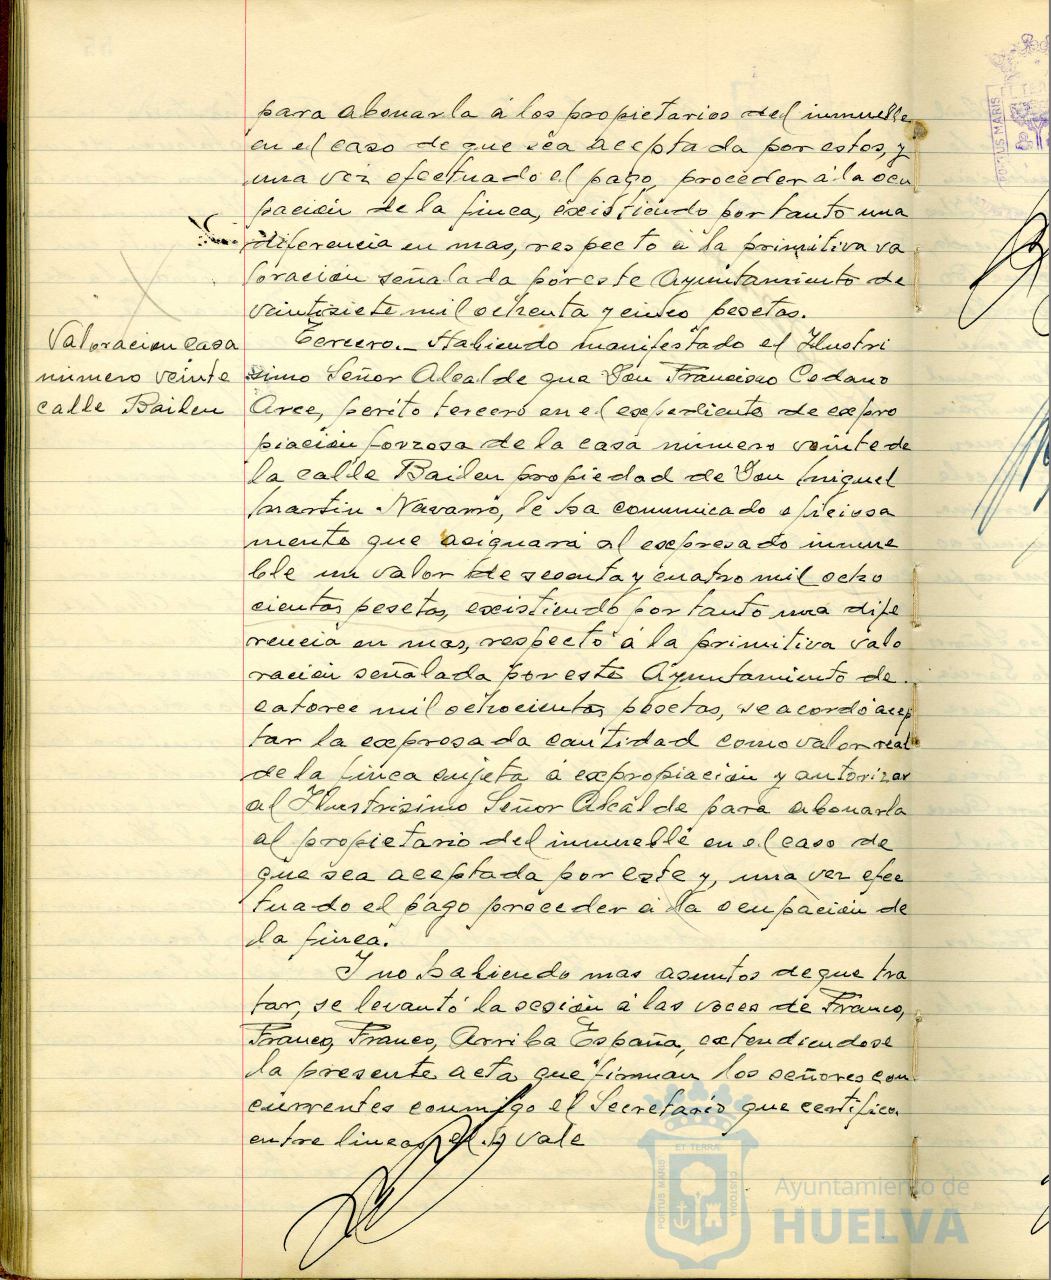 para abonarla á los propietarios del inmueble
en el caso de que sea aceptada por estos, y
una vez efectuado el pago proceder á la ocu
pación de la finca, existiendo por tanto una
diferencia en mas, respecto á la primitiva va
loración señalada por este Ayuntamiento de
veintisiete mil ochenta y cinco pesetas.
Valoracion casa
numero veinte
calle Bailen
Tercero._ Habiendo manifestado el Ilustri
simo Señor Alcalde que Don Francisco Cedano
Arce, perito tercero en el expediente de expro
piación forzosa de la casa numero veinte de
la calle Bailen propiedad de Don Miguel
Martin Navarro, le ha comunicado oficiosa
mente que asignará al expresado inmue
ble un valor de sesenta y cuatro mil ocho
cientas pesetas, existiendo por tanto una dife
rencia en mas, respecto á la primitiva valo
ración señalada por este Ayuntamiento de
catorce mil ochocientas pesetas, se acordó acep
tar la expresada cantidad como valor real
de la finca sujeta á expropiación y autorizar
al Ilustrisimo Señor Alcalde para abonarla
al propietario del inmueble en el caso de
que sea aceptada por este y, una vez efec
tuado el pago proceder á la ocupación de
la finca.
Y no habiendo mas asuntos de que tra
tar, se levantó la sesión á las voces de Franco,
Franco, Franco, Arriba España, extendiendose
la presente acta que firman los señores con
currentes conmigo el Secretario que certifico.
entre lineas el vale
ET TERRA
PORTUS MARIS
CUSTODIA
Ayuntamiento de
HUELVA
PORTUS MARIS